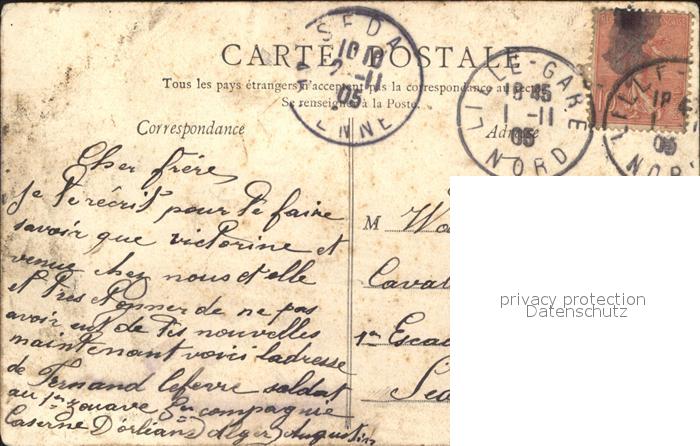 CARTE POSTALE
Tous les pays étrangers n'acceptent pas la correspondance au recto.
Se renseigner à la Poste.
SEDA
10
2 -11
05
ENNE
LILLE-GARE
18 45
1 -11
05
NORD
LILLE-
1
05
NOR
Correspondance
Adresse
Cher frère,
Je t'écrit pour te faire
savoir que victorine et
venue chez nous et elle
et très étonner de ne pas
avoir eut de tes nouvelles
maintenant voici ladresse
de Fernand lefevre soldat
au 1er zouave compagnie
Caserne D'orléans Alger Augustin
M
Caval
1er Esca
privacy protection
Datenschutz